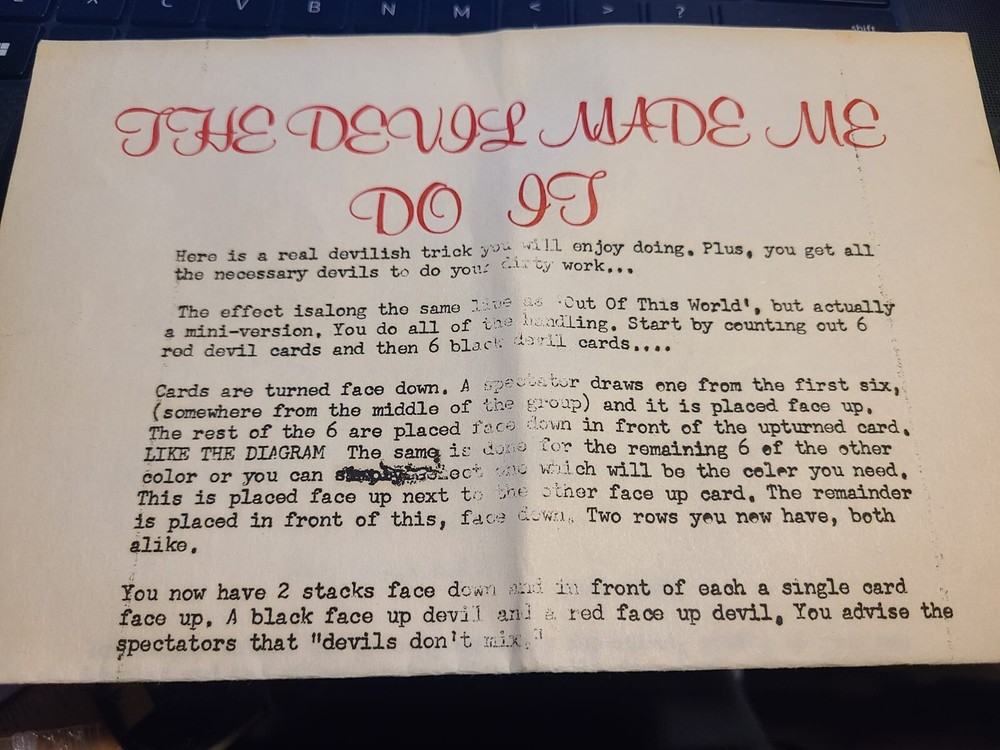 X C V B N M < > ?
shift
THE DEVIL MADE ME
DO IT
Here is a real devilish trick you will enjoy doing. Plus, you get all
the necessary devils to do your dirty work...
The effect isalong the same line as 'Out Of This World', but actually
a mini-version. You do all of the handling. Start by counting out 6
red devil cards and then 6 black devil cards....
Cards are turned face down. A spectator draws one from the first six,
(somewhere from the middle of the group) and it is placed face up.
The rest of the 6 are placed face down in front of the upturned card.
LIKE THE DIAGRAM The same is done for the remaining 6 of the other
color or you can select one which will be the color you need.
This is placed face up next to the other face up card. The remainder
is placed in front of this, face down. Two rows you now have, both
alike.
You now have 2 stacks face down and in front of each a single card
face up. A black face up devil and a red face up devil. You advise the
spectators that "devils don't mix."